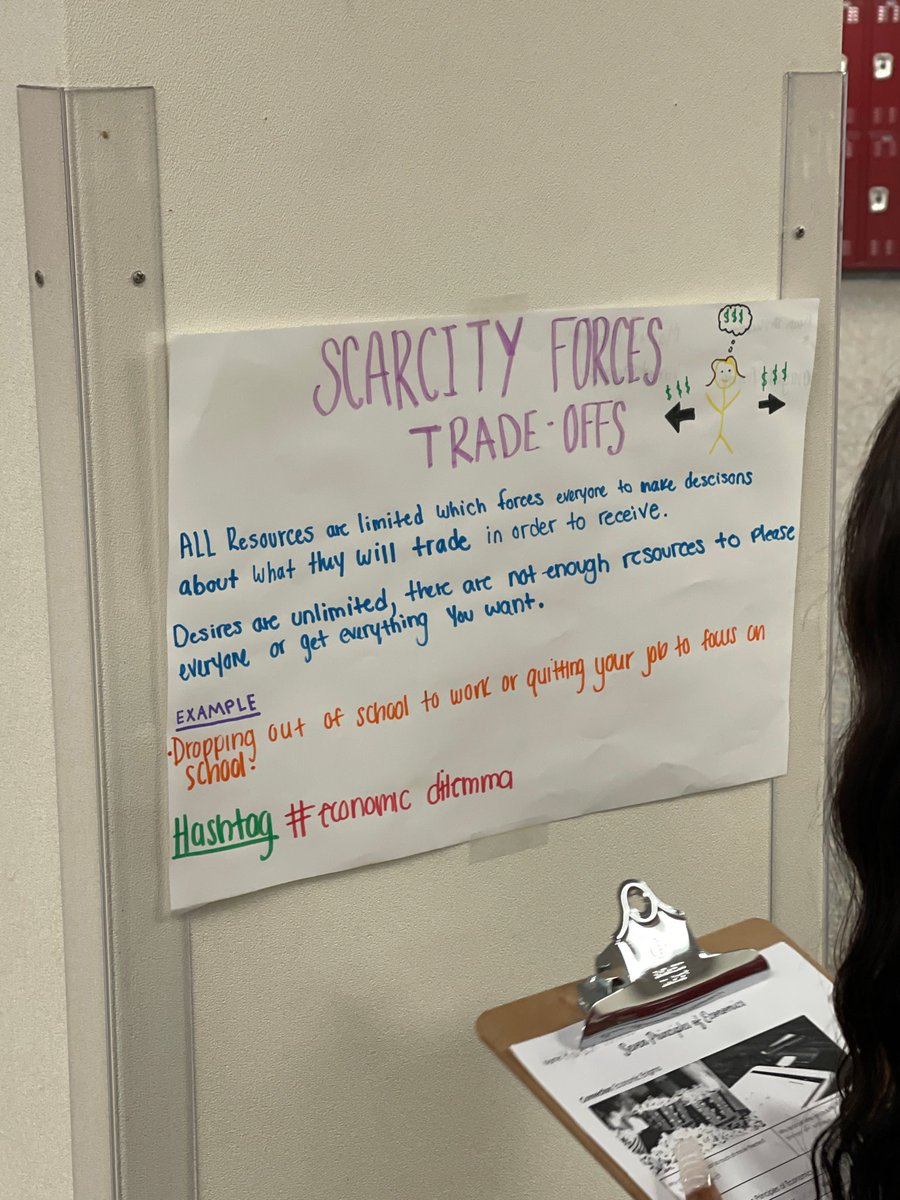 SCARCITY FORCES
TRADE-OFFS
$$$
$$$
$$$
ALL Resources are limited which forces everyone to make descisons
about what they will trade in order to receive.
Desires are unlimited, there are not enough resources to please
everyone or get everything You want.
EXAMPLE
•Dropping out of school to work or quitting your job to focus on
school?
Hashtag #economic dilemma
Seven Principles of Economics